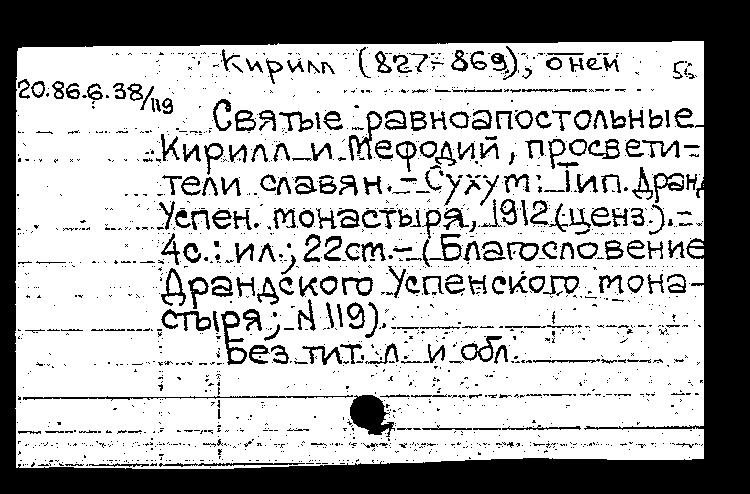 Кирилл (827-869), о нем 56
20.86.6.38/119
Святые равноапостольные
Кирилл и Мефодий, просвети-
тели славян. - Сухум: Тип. Дранд
Успен. монастыря, 1912 (ценз.). -
4с.: ил.; 22 см. - (Благословение
Драндского Успенского мона-
стыря; N 119).
Без тит. л. и обл.